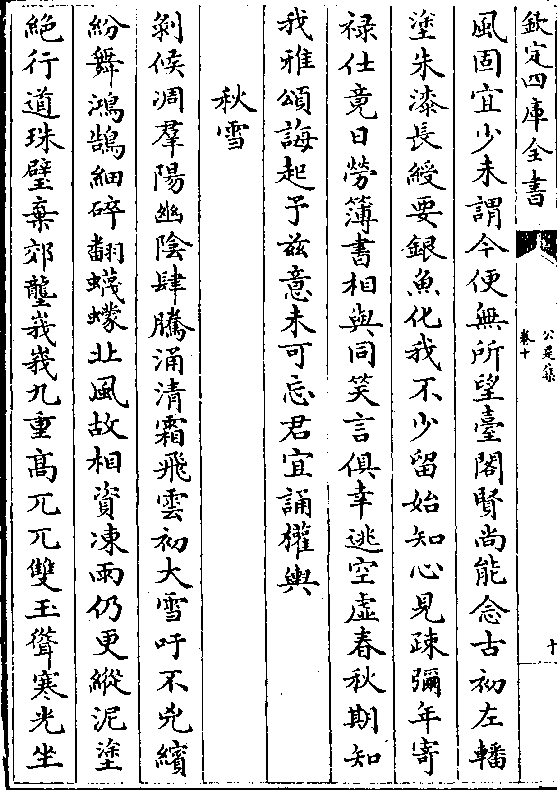 欽定四庫全書
公是集
卷十
十
風固宜少未謂今便無所望臺閣賢尚能念古初左轓
塗朱漆長綬要銀魚化我不少留始知心見疎彌年寄
禄仕竟日勞簿書相與同笑言俱幸逃空虛春秋期知
我雅頌誨起予兹意未可忘君宜誦權輿
秋雪
剝候凋羣陽幽陰肆騰涌清霜飛雲初大雪吁不兇繽
紛舞鴻鵠細碎翻蠛蠓北風故相資凍雨仍更縱泥塗
絶行道珠璧棄郊壟峩峩九重高兀兀雙玉聳寒光坐